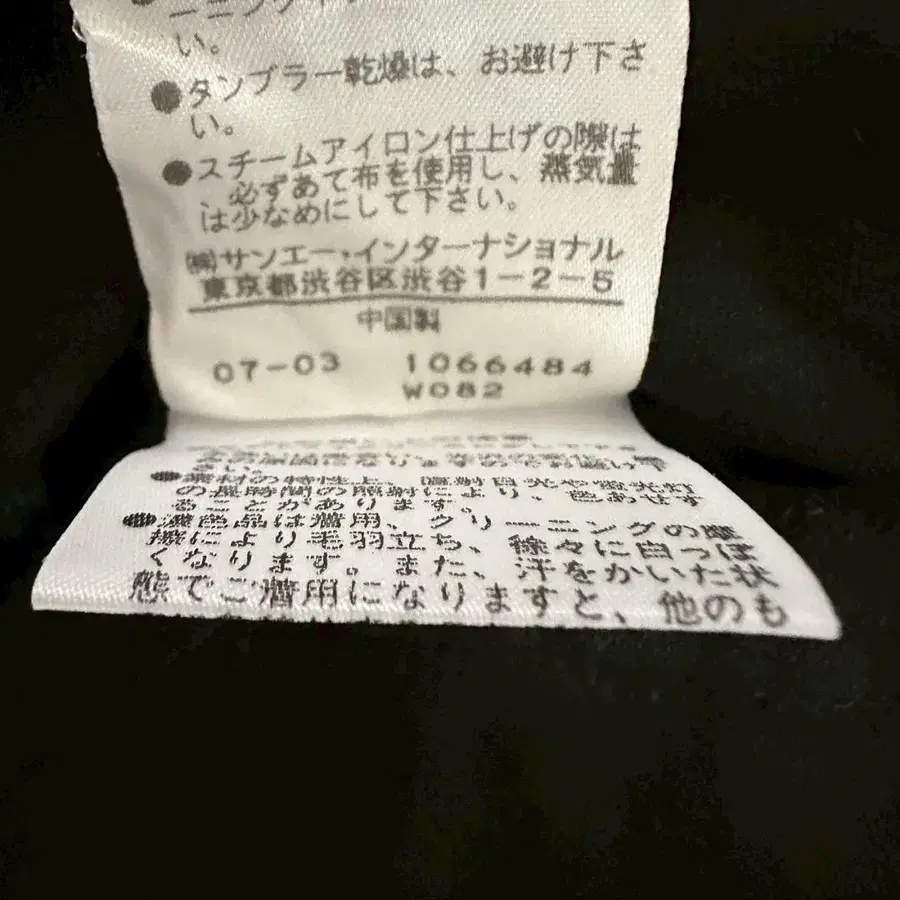 い。
●タンブラー乾燥は、お避け下さ
い。
●スチームアイロン仕上げの際は
必ずあて布を使用し、蒸気量
は少なめにして下さい。
㈱サンエー・インターナショナル
東京都渋谷区渋谷1-2-5
中国製
07-03 1066484
W082
さい。
●素材の特性上、直射日光や蛍光灯
の長時間の照射により、色あせす
ることがあります。
●濃色品は着用、クリーニングの摩
擦により毛羽立ち、徐々に白っぽ
くなります。また、汗をかいた状
態でご着用になりますと、他のも